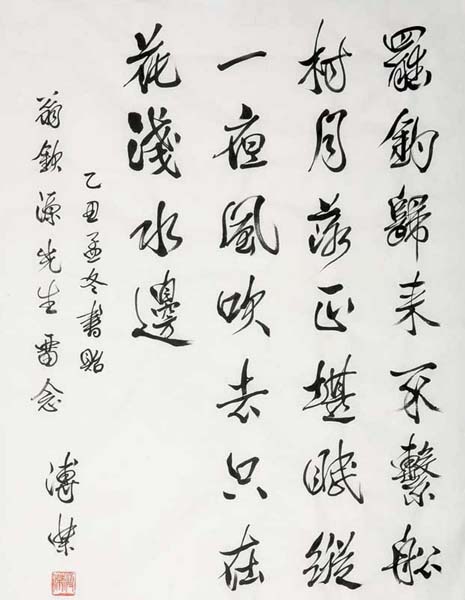 罷釣歸来不繫船
村月落正堪眠縱
一夜風吹去只在
花淺水邊
乙丑孟冬書貽
翁欽源先生畱念
溥傑